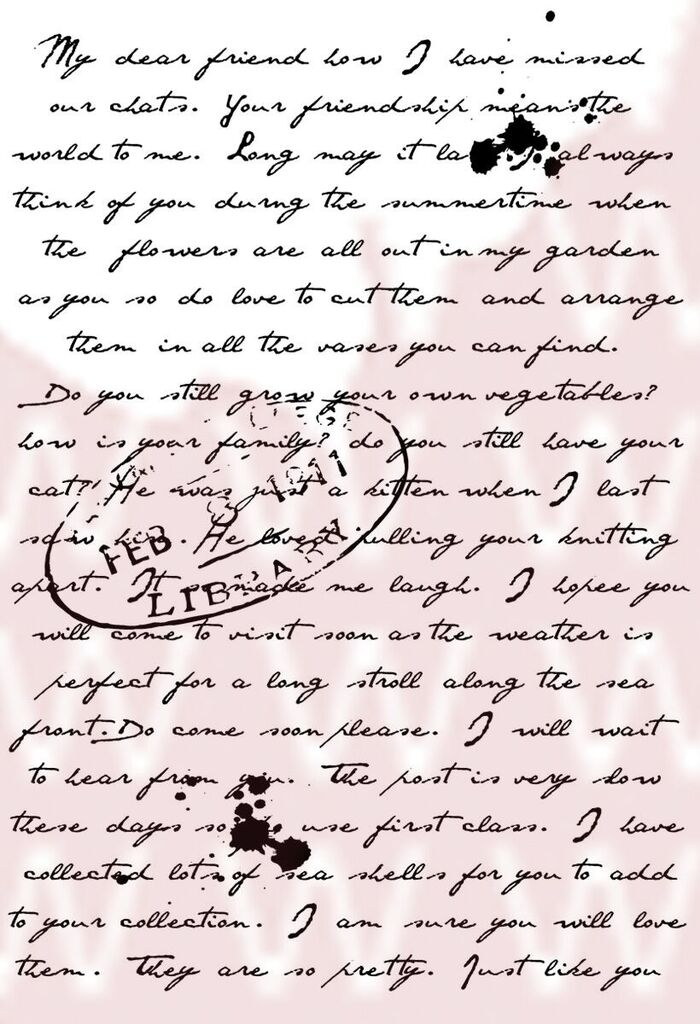 My dear friend how I have missed
our chats. Your friendship means the
world to me. Long may it la always
think of you durng the summertime when
the flowers are all out in my garden
as you so do love to cut them and arrange
them in all the vases you can find.
Do you still grow your own vegetables?
how is your family? do you still have your
cat? He was just a kitten when I last
saw him. He loved pulling your knitting
apart. It so made me laugh. I hopee you
will come to visit soon as the weather is
perfect for a long stroll along the sea
front. Do come soon please. I will wait
to hear from you. The post is very slow
these days so use first class. I have
collected lots of sea shells for you to add
to your collection. I am sure you will love
them. They are so pretty. Just like you
FEB 8 1911
LIBRARY